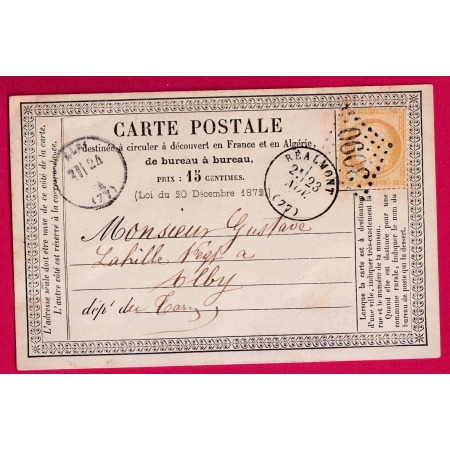 CARTE POSTALE
destinée à circuler à découvert en France et en Algérie,
de bureau à bureau.
PRIX : 15 CENTIMES.
(Loi du 20 Décembre 1872)
REALMONT
23
NOV.
(77)
24
(77)
Monsieur Gustave
Lahille Négt a
Alby
dépt du Tarn
L'adresse seule doit être mise de ce côté de la carte.
L'autre côté est réservé à la correspondance.
Lorsque la carte est à destination
d'une ville, indiquer très-exactement la
rue et le numéro de la maison.
Quand elle est destinée pour une
commune rurale, indiquer le nom du
bureau de poste qui la dessert.